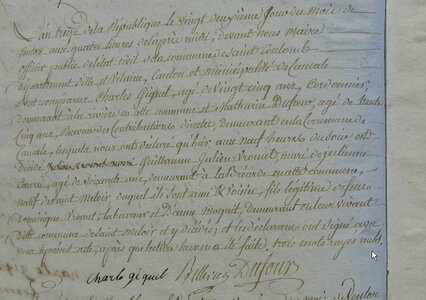 L'an treize de la République le vingt deuxième jour du mois de
mètre aux quatre heures de l'après midi, devant nous maire
officier public de l'état civil de la commune de Saint Coulomb
département d'Ille et Vilaine, Canton et municipalité de Cancale
sont comparus Charles Giquel, agé de vingt cinq ans, Cordonnier,
demeurant à la rivière en cette commune et Mathurin Dufour, agé de trente
Cinq ans, Receveur des Contributions directes, demeurant en la Commune de
Cancale, lesquels nous ont déclaré qu'hier aux neuf heures du soir est
décédé Guillaume Julien Vromet, mari de julienne
agé de soixante ans, demeurant à la en cette commune,
natif de Saint Meloir, duquel ils sont ami & voisin, fils légitime de feus
Dominique Vromet, laboureur et Jeanne demeurant en leur vivant
Dite commune de Saint Meloir et y décédés ; et les déclarans ont signé avec
nous le présent acte, après que lecture leur en a été fait, trois mots rayés nuls.
Charle giquel Dufour